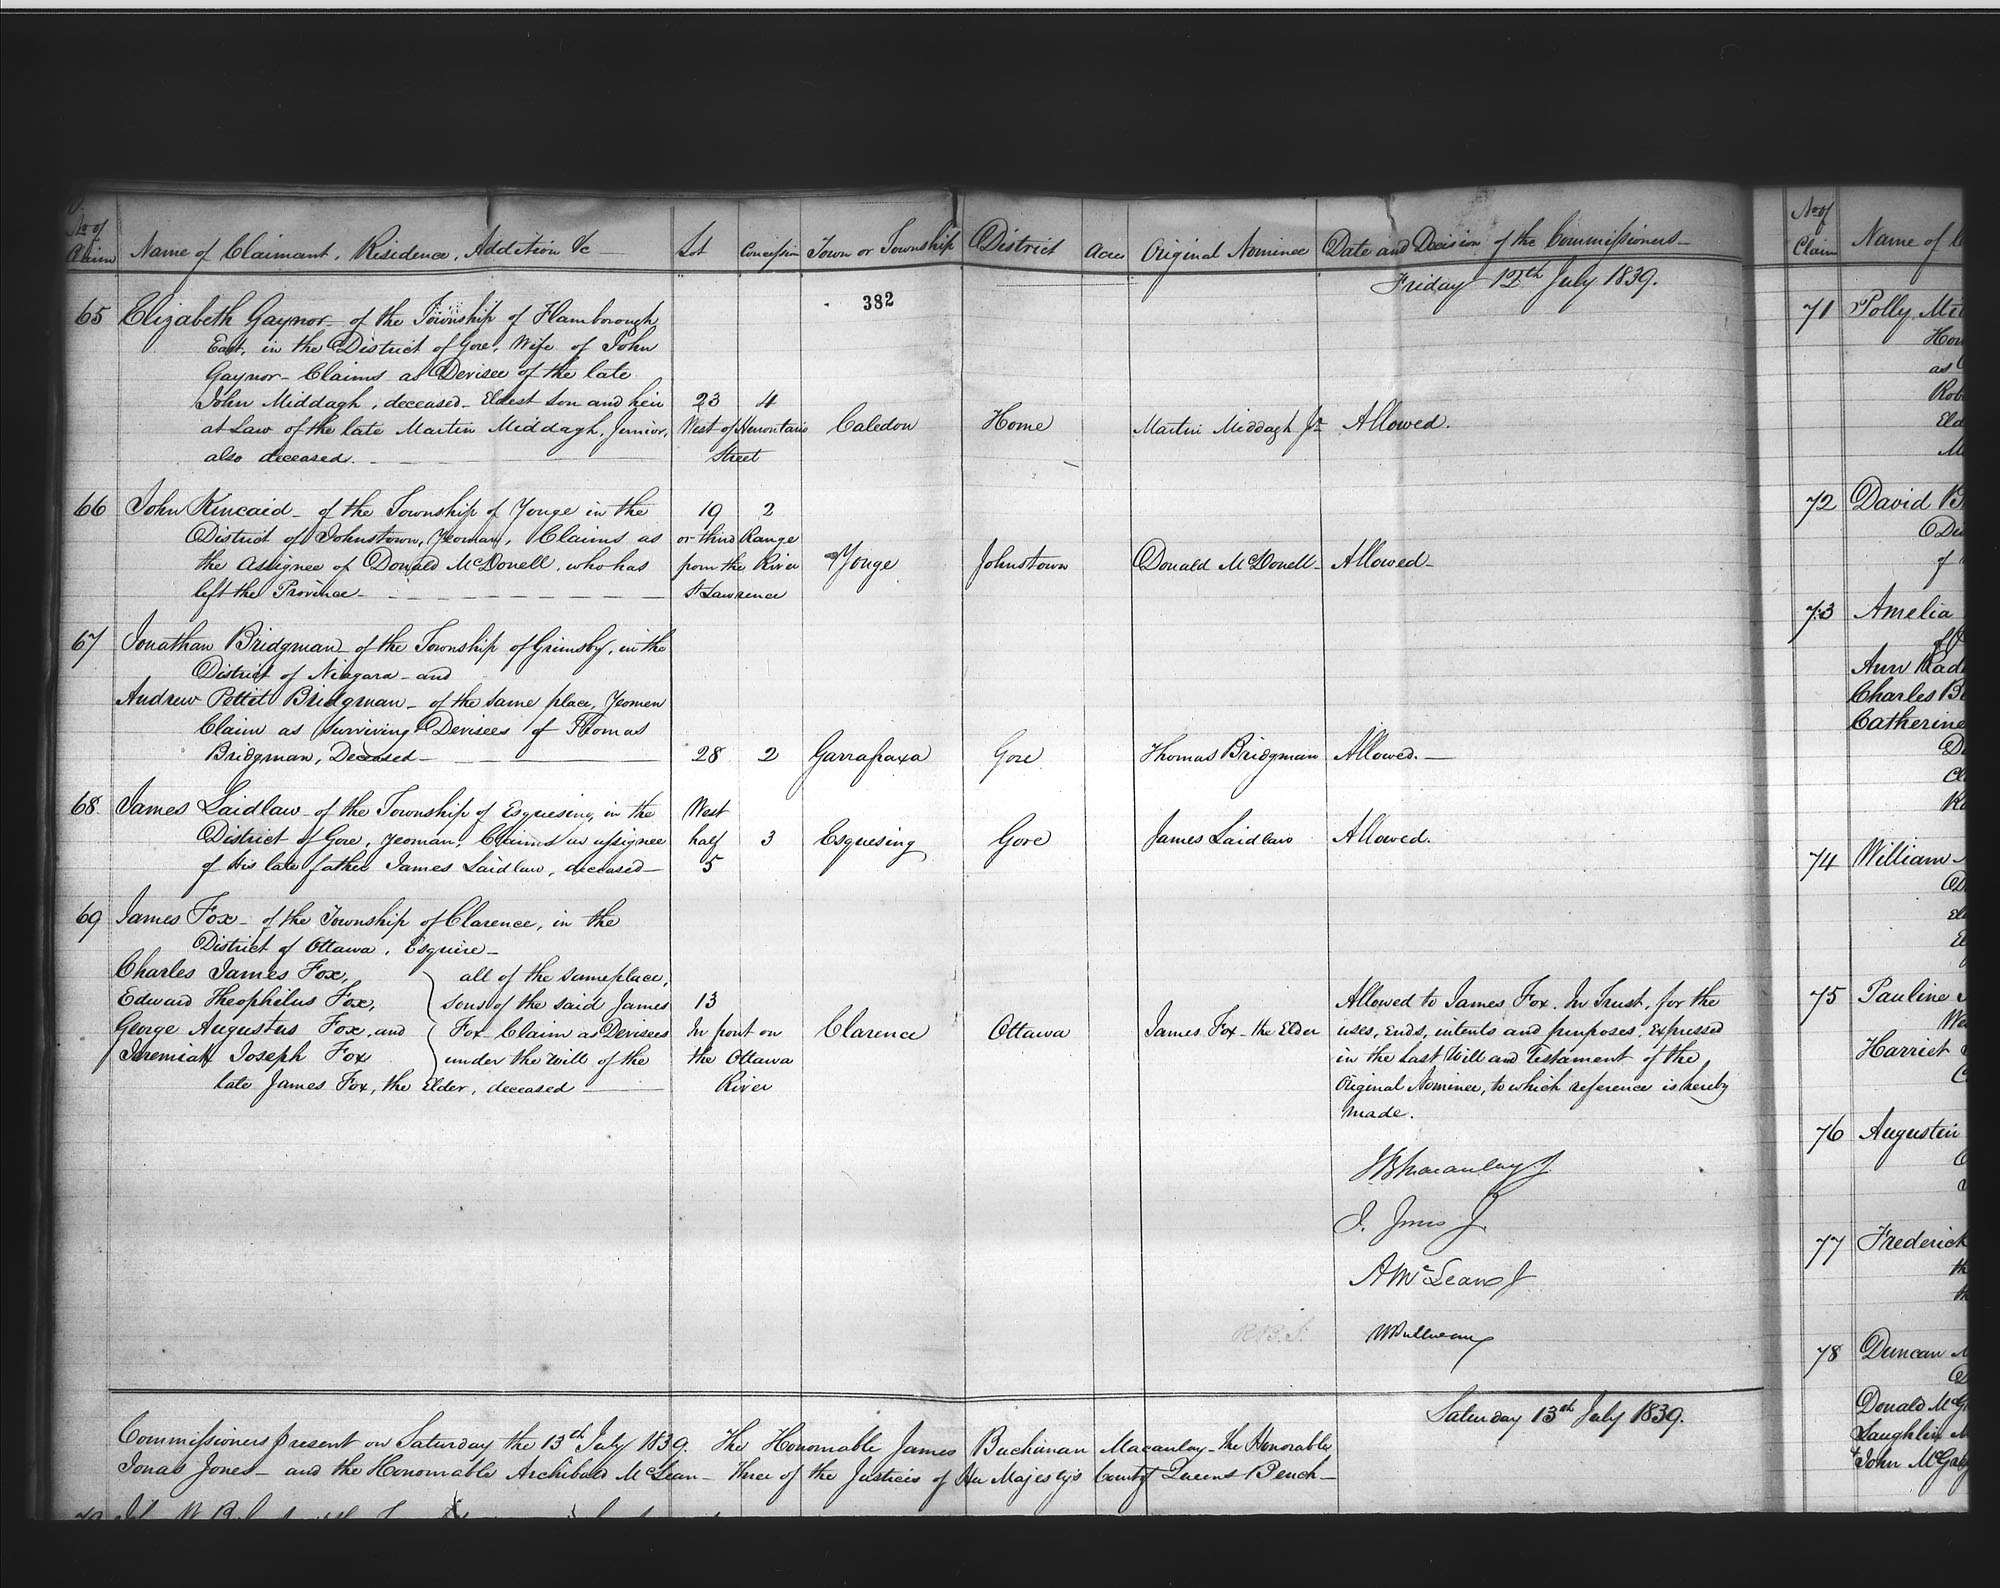 No of Claim Name of Claimant, Residence, Addition &c Lot Concession Town or Township District Acres Original Nominee Date and Decision of the Commissioners
Friday 12th July 1839.
382
65 Elizabeth Gaynor - of the Township of Flamborough
East, in the District of Gore, Wife of John
Gaynor - Claims as Devisee of the late
John Middagh, deceased - Eldest Son and heir 23 4
at Law of the late Martin Middagh, Junior, West of Hurontario Caledon Home Martin Middagh Jr Allowed.
also deceased. Street
66 John Kincaid - of the Township of Yonge in the 19 2
District of Johnstown, Yeoman, Claims as or third Range
the Assignee of Donald McDonell, who has from the River Yonge Johnstown Donald McDonell - Allowed -
left the Province - St Lawrence
67 Jonathan Bridgman of the Township of Grimsby, in the
District of Niagara - and
Andrew Pettit Bridgman - of the same place, Yeomen
Claim as surviving Devisees of Thomas
Bridgman, Deceased - 28 2 Garrafraxa Gore Thomas Bridgman Allowed. -
68 James Laidlaw - of the Township of Esquesing, in the West
District of Gore, Yeoman, Claims as assignee half 3 Esquesing Gore James Laidlaw Allowed.
of his late father James Laidlaw, deceased - 5
69 James Fox - of the Township of Clarence, in the
District of Ottawa, Esquire -
Charles James Fox, all of the same place,
Edward Theophilus Fox, sons of the said James 13 Allowed to James Fox. In Trust, for the
George Augustus Fox, and Fox - Claim as Devisees In front on Clarence Ottawa James Fox - the Elder uses, ends, intents and purposes, expressed
Jeremiah Joseph Fox under the Will of the the Ottawa in the last Will and Testament of the
late James Fox, the Elder, deceased River Original Nominee, to which reference is hereby
made.
JB Macaulay J.
J. Jones J.
A McLean J
Saturday 13th July 1839.
Commissioners present on Saturday the 13th July 1839. The Honorable James Buchanan Macaulay - the Honorable
Jonas Jones - and the Honourable Archibald McLean - three of the Justices of Her Majesty's Court of Queens Bench -
No of Claim Name of
71 Polly
as
72 David
of
73 Amelia
Ann
Charles
Catherine
74 William
75 Pauline
Harriet
76 Augustin
77 Frederick
78 Duncan
Donald
Laughlin
John